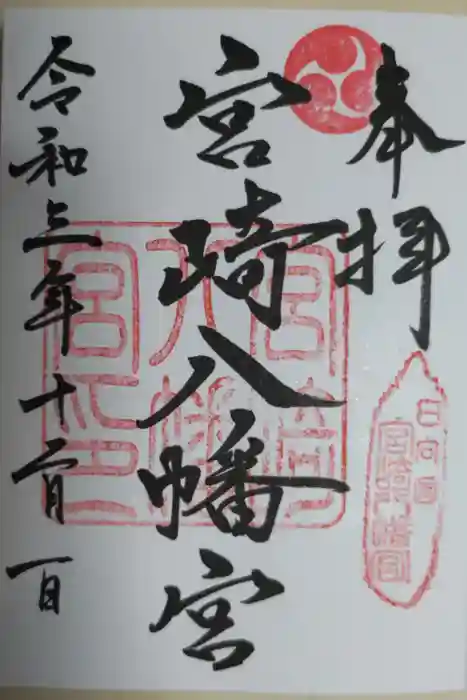 奉拝
日向国
宮崎八幡宮
宮崎八幡宮
宮崎
八幡
宮印
令和三年十二月一日